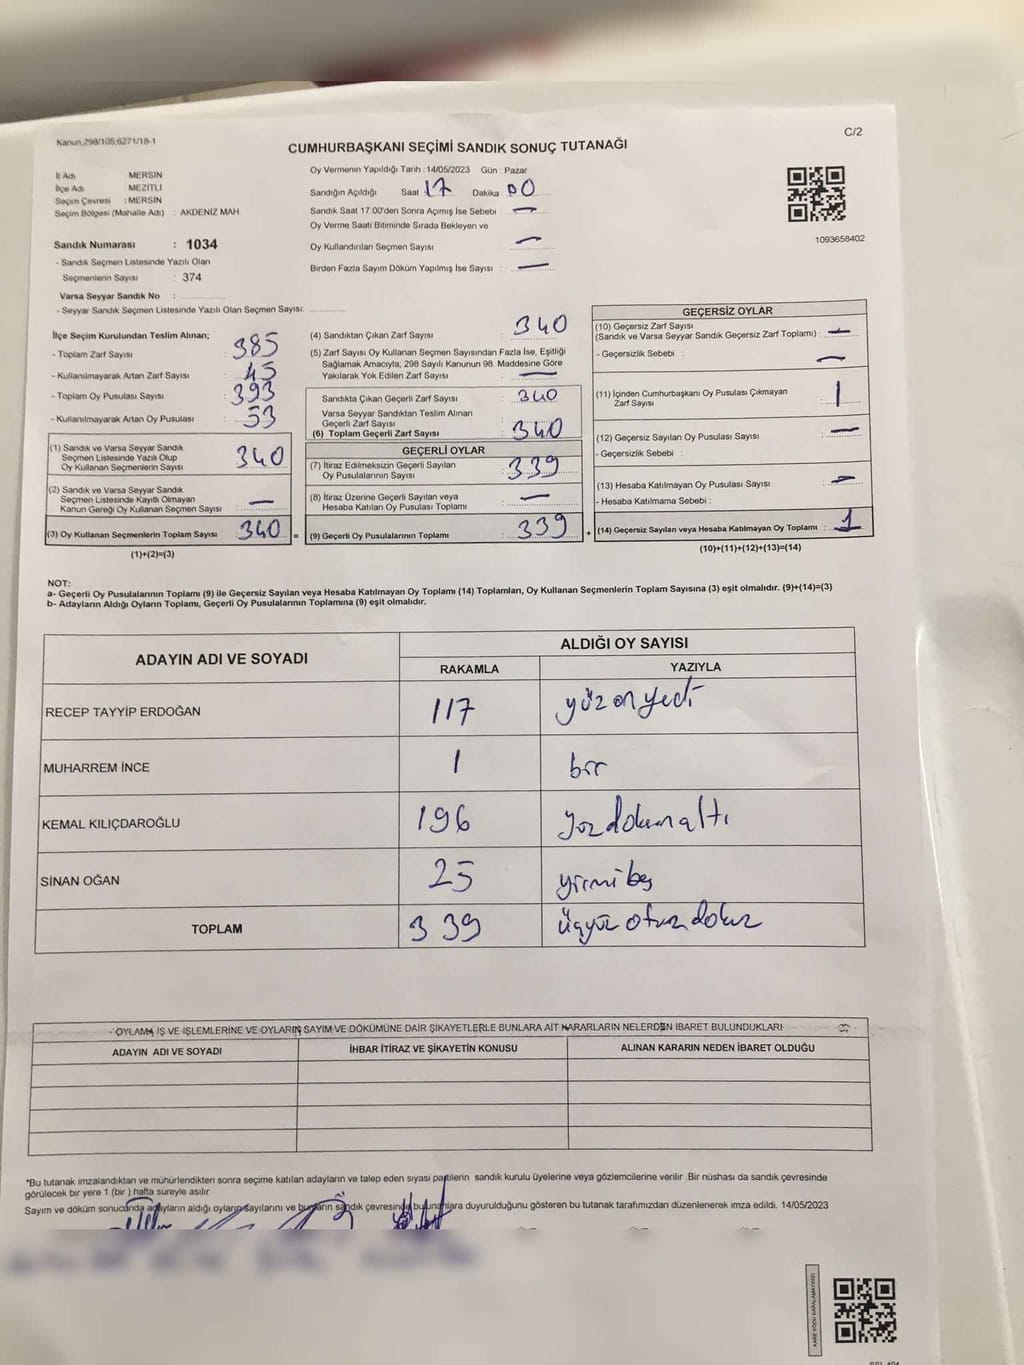 Kanun,298/105;6271/18-1
C/2
CUMHURBAŞKANI SEÇİMİ SANDIK SONUÇ TUTANAĞI
İl Adı MERSİN
İlçe Adı MEZİTLİ
Seçim Çevresi : MERSİN
Seçim Bölgesi (Mahalle Adı) : AKDENİZ MAH.
Sandık Numarası : 1034
- Sandık Seçmen Listesinde Yazılı Olan
Seçmenlerin Sayısı : 374
Varsa Seyyar Sandık No :
- Seyyar Sandık Seçmen Listesinde Yazılı Olan Seçmen Sayısı:
Oy Vermenin Yapıldığı Tarih : 14/05/2023 Gün : Pazar
Sandığın Açıldığı Saat 17 Dakika 00
Sandık Saat 17.00'den Sonra Açımış İse Sebebi —
Oy Verme Saati Bitiminde Sırada Bekleyen ve
Oy Kullandırılan Seçmen Sayısı —
Birden Fazla Sayım Döküm Yapılmış İse Sayısı : —
1093658402
İlçe Seçim Kurulundan Teslim Alınan;
- Toplam Zarf Sayısı : 385
- Kullanılmayarak Artan Zarf Sayısı : 45
- Toplam Oy Pusulası Sayısı : 393
- Kullanılmayarak Artan Oy Pusulası : 53
(1) Sandık ve Varsa Seyyar Sandık
Seçmen Listesinde Yazılı Olup
Oy Kullanan Seçmenlerin Sayısı : 340
(2) Sandık ve Varsa Seyyar Sandık
Seçmen Listesinde Kayıtlı Olmayan
Kanun Gereği Oy Kullanan Seçmen Sayısı : —
(3) Oy Kullanan Seçmenlerin Toplam Sayısı : 340 =
(1)+(2)=(3)
(4) Sandıktan Çıkan Zarf Sayısı : 340
(5) Zarf Sayısı Oy Kullanan Seçmen Sayısından Fazla İse, Eşitliği
Sağlamak Amacıyla; 298 Sayılı Kanunun 98. Maddesine Göre
Yakılarak Yok Edilen Zarf Sayısı : —
Sandıkta Çıkan Geçerli Zarf Sayısı : 340
Varsa Seyyar Sandıktan Teslim Alınan
Geçerli Zarf Sayısı :
(6) Toplam Geçerli Zarf Sayısı : 340
GEÇERLİ OYLAR
(7) İtiraz Edilmeksizin Geçerli Sayılan
Oy Pusulalarının Sayısı : 339
(8) İtiraz Üzerine Geçerli Sayılan veya
Hesaba Katılan Oy Pusulası Toplamı : —
(9) Geçerli Oy Pusulalarının Toplamı : 339 +
GEÇERSİZ OYLAR
(10) Geçersiz Zarf Sayısı
(Sandık ve Varsa Seyyar Sandık Geçersiz Zarf Toplamı) : —
- Geçersizlik Sebebi : —
(11) İçinden Cumhurbaşkanı Oy Pusulası Çıkmayan
Zarf Sayısı : 1
(12) Geçersiz Sayılan Oy Pusulası Sayısı : —
- Geçersizlik Sebebi :
(13) Hesaba Katılmayan Oy Pusulası Sayısı : —
- Hesaba Katılmama Sebebi :
(14) Geçersiz Sayılan veya Hesaba Katılmayan Oy Toplamı : 1
(10)+(11)+(12)+(13)=(14)
NOT:
a- Geçerli Oy Pusulalarının Toplamı (9) ile Geçersiz Sayılan veya Hesaba Katılmayan Oy Toplamı (14) Toplamları, Oy Kullanan Seçmenlerin Toplam Sayısına (3) eşit olmalıdır. (9)+(14)=(3)
b- Adayların Aldığı Oyların Toplamı, Geçerli Oy Pusulalarının Toplamına (9) eşit olmalıdır.
ADAYIN ADI VE SOYADI ALDIĞI OY SAYISI
RAKAMLA YAZIYLA
RECEP TAYYİP ERDOĞAN 117 yüzonyedi
MUHARREM İNCE 1 bir
KEMAL KILIÇDAROĞLU 196 yüzdoksanaltı
SİNAN OĞAN 25 yirmibeş
TOPLAM 339 üçyüzotuzdokuz
OYLAMA İŞ VE İŞLEMLERİNE VE OYLARIN SAYIM VE DÖKÜMÜNE DAİR ŞİKAYETLERLE BUNLARA AİT KARARLARIN NELERDEN İBARET BULUNDUKLARI
ADAYIN ADI VE SOYADI İHBAR İTİRAZ VE ŞİKAYETİN KONUSU ALINAN KARARIN NEDEN İBARET OLDUĞU
*Bu tutanak imzalandıktan ve mühürlendikten sonra seçime katılan adayların ve talep eden siyasi partilerin sandık kurulu üyelerine veya gözlemcilerine verilir. Bir nüshası da sandık çevresinde
görülecek bir yere 1 (bir ) hafta süreyle asılır.
Sayım ve döküm sonucunda adayların aldığı oyların sayılarını ve bunların sandık çevresinde bulunanlara duyurulduğunu gösteren bu tutanak tarafımızdan düzenlenerek imza edildi. 14/05/2023
KARE KODU KARALAMAYINIZ!